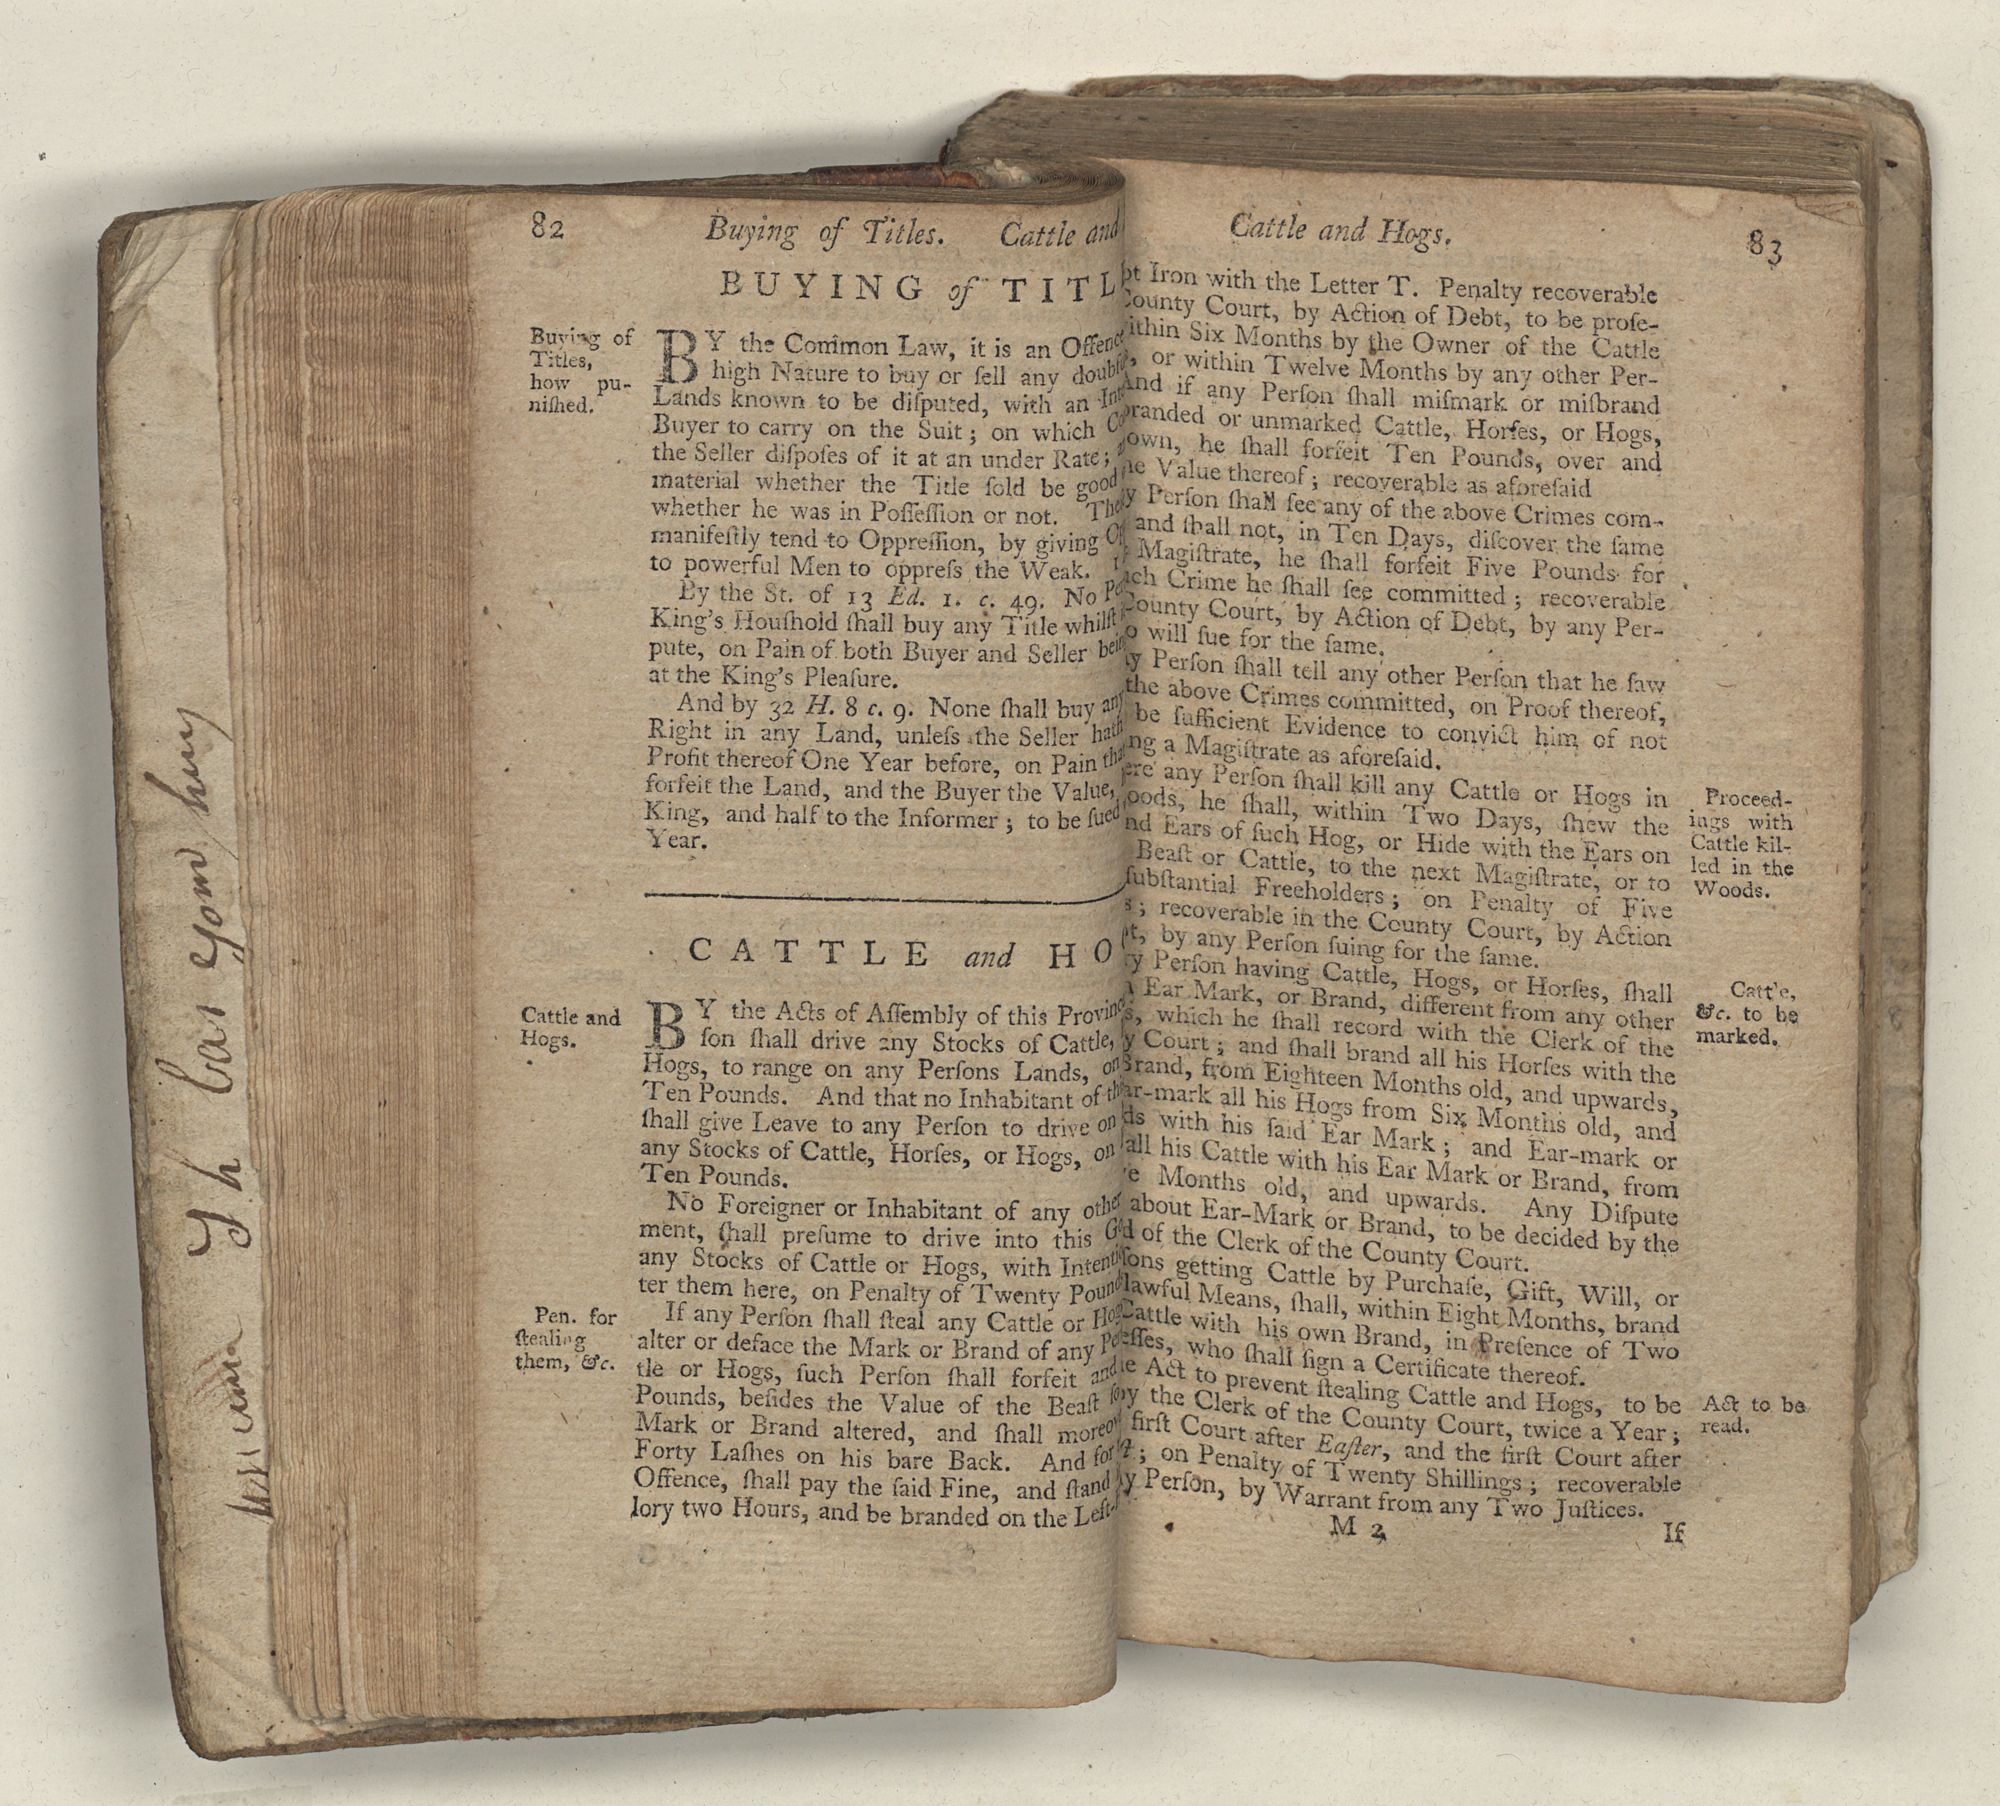 82
Buying of Titles. Cattle and
BUYING of TITL
Buying of
Titles,
how pu-
niſhed.
BY the Common Law, it is an Offence
high Nature to buy or ſell any doubtf
Lands known to be diſputed, with an Int
Buyer to carry on the Suit; on which Co
the Seller diſpoſes of it at an under Rate;
material whether the Title ſold be good
whether he was in Poſſeſſion or not. Theſ
manifeſtly tend to Oppreſſion, by giving
to powerful Men to oppreſs the Weak.
By the St. of 13 Ed. 1. c. 49. No Pe
King's Houſhold ſhall buy any Title whilſt
pute, on Pain of both Buyer and Seller bein
at the King's Pleaſure.
And by 32 H. 8 c. 9. None ſhall buy any
Right in any Land, unleſs the Seller hath
Profit thereof One Year before, on Pain tha
forfeit the Land, and the Buyer the Value,
King, and half to the Informer; to be ſued
Year.
CATTLE and HO
Cattle and
Hogs.
BY the Acts of Aſſembly of this Provinc
ſon ſhall drive any Stocks of Cattle,
Hogs, to range on any Perſons Lands, on
Ten Pounds. And that no Inhabitant of th
ſhall give Leave to any Perſon to drive on
any Stocks of Cattle, Horſes, or Hogs, on
Ten Pounds.
No Foreigner or Inhabitant of any other
ment, ſhall preſume to drive into this Go
any Stocks of Cattle or Hogs, with Intenti
ter them here, on Penalty of Twenty Pound
Pen. for
ſtealing
them, &c.
If any Perſon ſhall ſteal any Cattle or Hog
alter or deface the Mark or Brand of any Pe
tle or Hogs, ſuch Perſon ſhall forfeit and
Pounds, beſides the Value of the Beaſt ſo
Mark or Brand altered, and ſhall moreov
Forty Laſhes on his bare Back. And for
Offence, ſhall pay the ſaid Fine, and ſtand
lory two Hours, and be branded on the Left
Cattle and Hogs.
83
ot Iron with the Letter T. Penalty recoverable
County Court, by Action of Debt, to be proſe-
ithin Six Months by the Owner of the Cattle
, or within Twelve Months by any other Per-
And if any Perſon ſhall miſmark or miſbrand
branded or unmarked Cattle, Horſes, or Hogs,
own, he ſhall forfeit Ten Pounds, over and
he Value thereof; recoverable as aforeſaid
y Perſon ſhall ſee any of the above Crimes com-
and ſhall not, in Ten Days, diſcover the ſame
Magiſtrate, he ſhall forfeit Five Pounds for
ach Crime he ſhall ſee committed; recoverable
County Court, by Action of Debt, by any Per-
o will ſue for the ſame.
y Perſon ſhall tell any other Perſon that he ſaw
the above Crimes committed, on Proof thereof,
be ſufficient Evidence to convict him of not
ng a Magiſtrate as aforeſaid.
ere any Perſon ſhall kill any Cattle or Hogs in
oods, he ſhall, within Two Days, ſhew the
nd Ears of ſuch Hog, or Hide with the Ears on
Beaſt or Cattle, to the next Magiſtrate, or to
ſubſtantial Freeholders; on Penalty of Five
s; recoverable in the County Court, by Action
t, by any Perſon ſuing for the ſame.
Proceed-
ings with
Cattle kil-
led in the
Woods.
y Perſon having Cattle, Hogs, or Horſes, ſhall
Ear Mark, or Brand, different from any other
s, which he ſhall record with the Clerk of the
y Court; and ſhall brand all his Horſes with the
Brand, from Eighteen Months old, and upwards,
ar-mark all his Hogs from Six Months old, and
ds with his ſaid Ear Mark; and Ear-mark or
all his Cattle with his Ear Mark or Brand, from
e Months old, and upwards. Any Diſpute
about Ear-Mark or Brand, to be decided by the
d of the Clerk of the County Court.
Cattle,
&c. to be
marked.
ſons getting Cattle by Purchaſe, Gift, Will, or
lawful Means, ſhall, within Eight Months, brand
Cattle with his own Brand, in Preſence of Two
eſſes, who ſhall ſign a Certificate thereof.
e Act to prevent ſtealing Cattle and Hogs, to be
y the Clerk of the County Court, twice a Year;
firſt Court after Eaſter, and the firſt Court after
; on Penalty of Twenty Shillings; recoverable
y Perſon, by Warrant from any Two Juſtices.
Act to be
read.
M 2
If